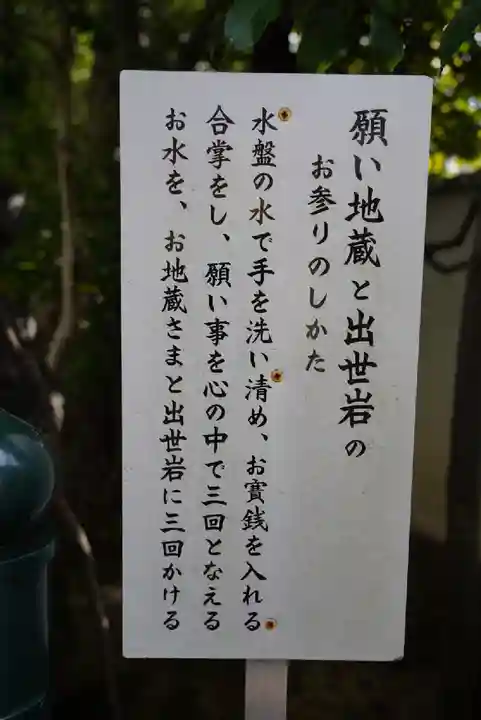 願い地蔵と出世岩の
お参りのしかた
水盤の水で手を洗い清め、お賽銭を入れる
合掌をし、願い事を心の中で三回となえる
お水を、お地蔵さまと出世岩に三回かける